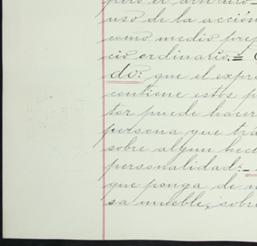 por el
uso de la acción
como medio prep
cio ordinario.=
do: que el expre
contiene estos p
tor puede hacer
persona que tra
sobre algun hec
personalidad:
que ponga de m
sa mueble, sobr